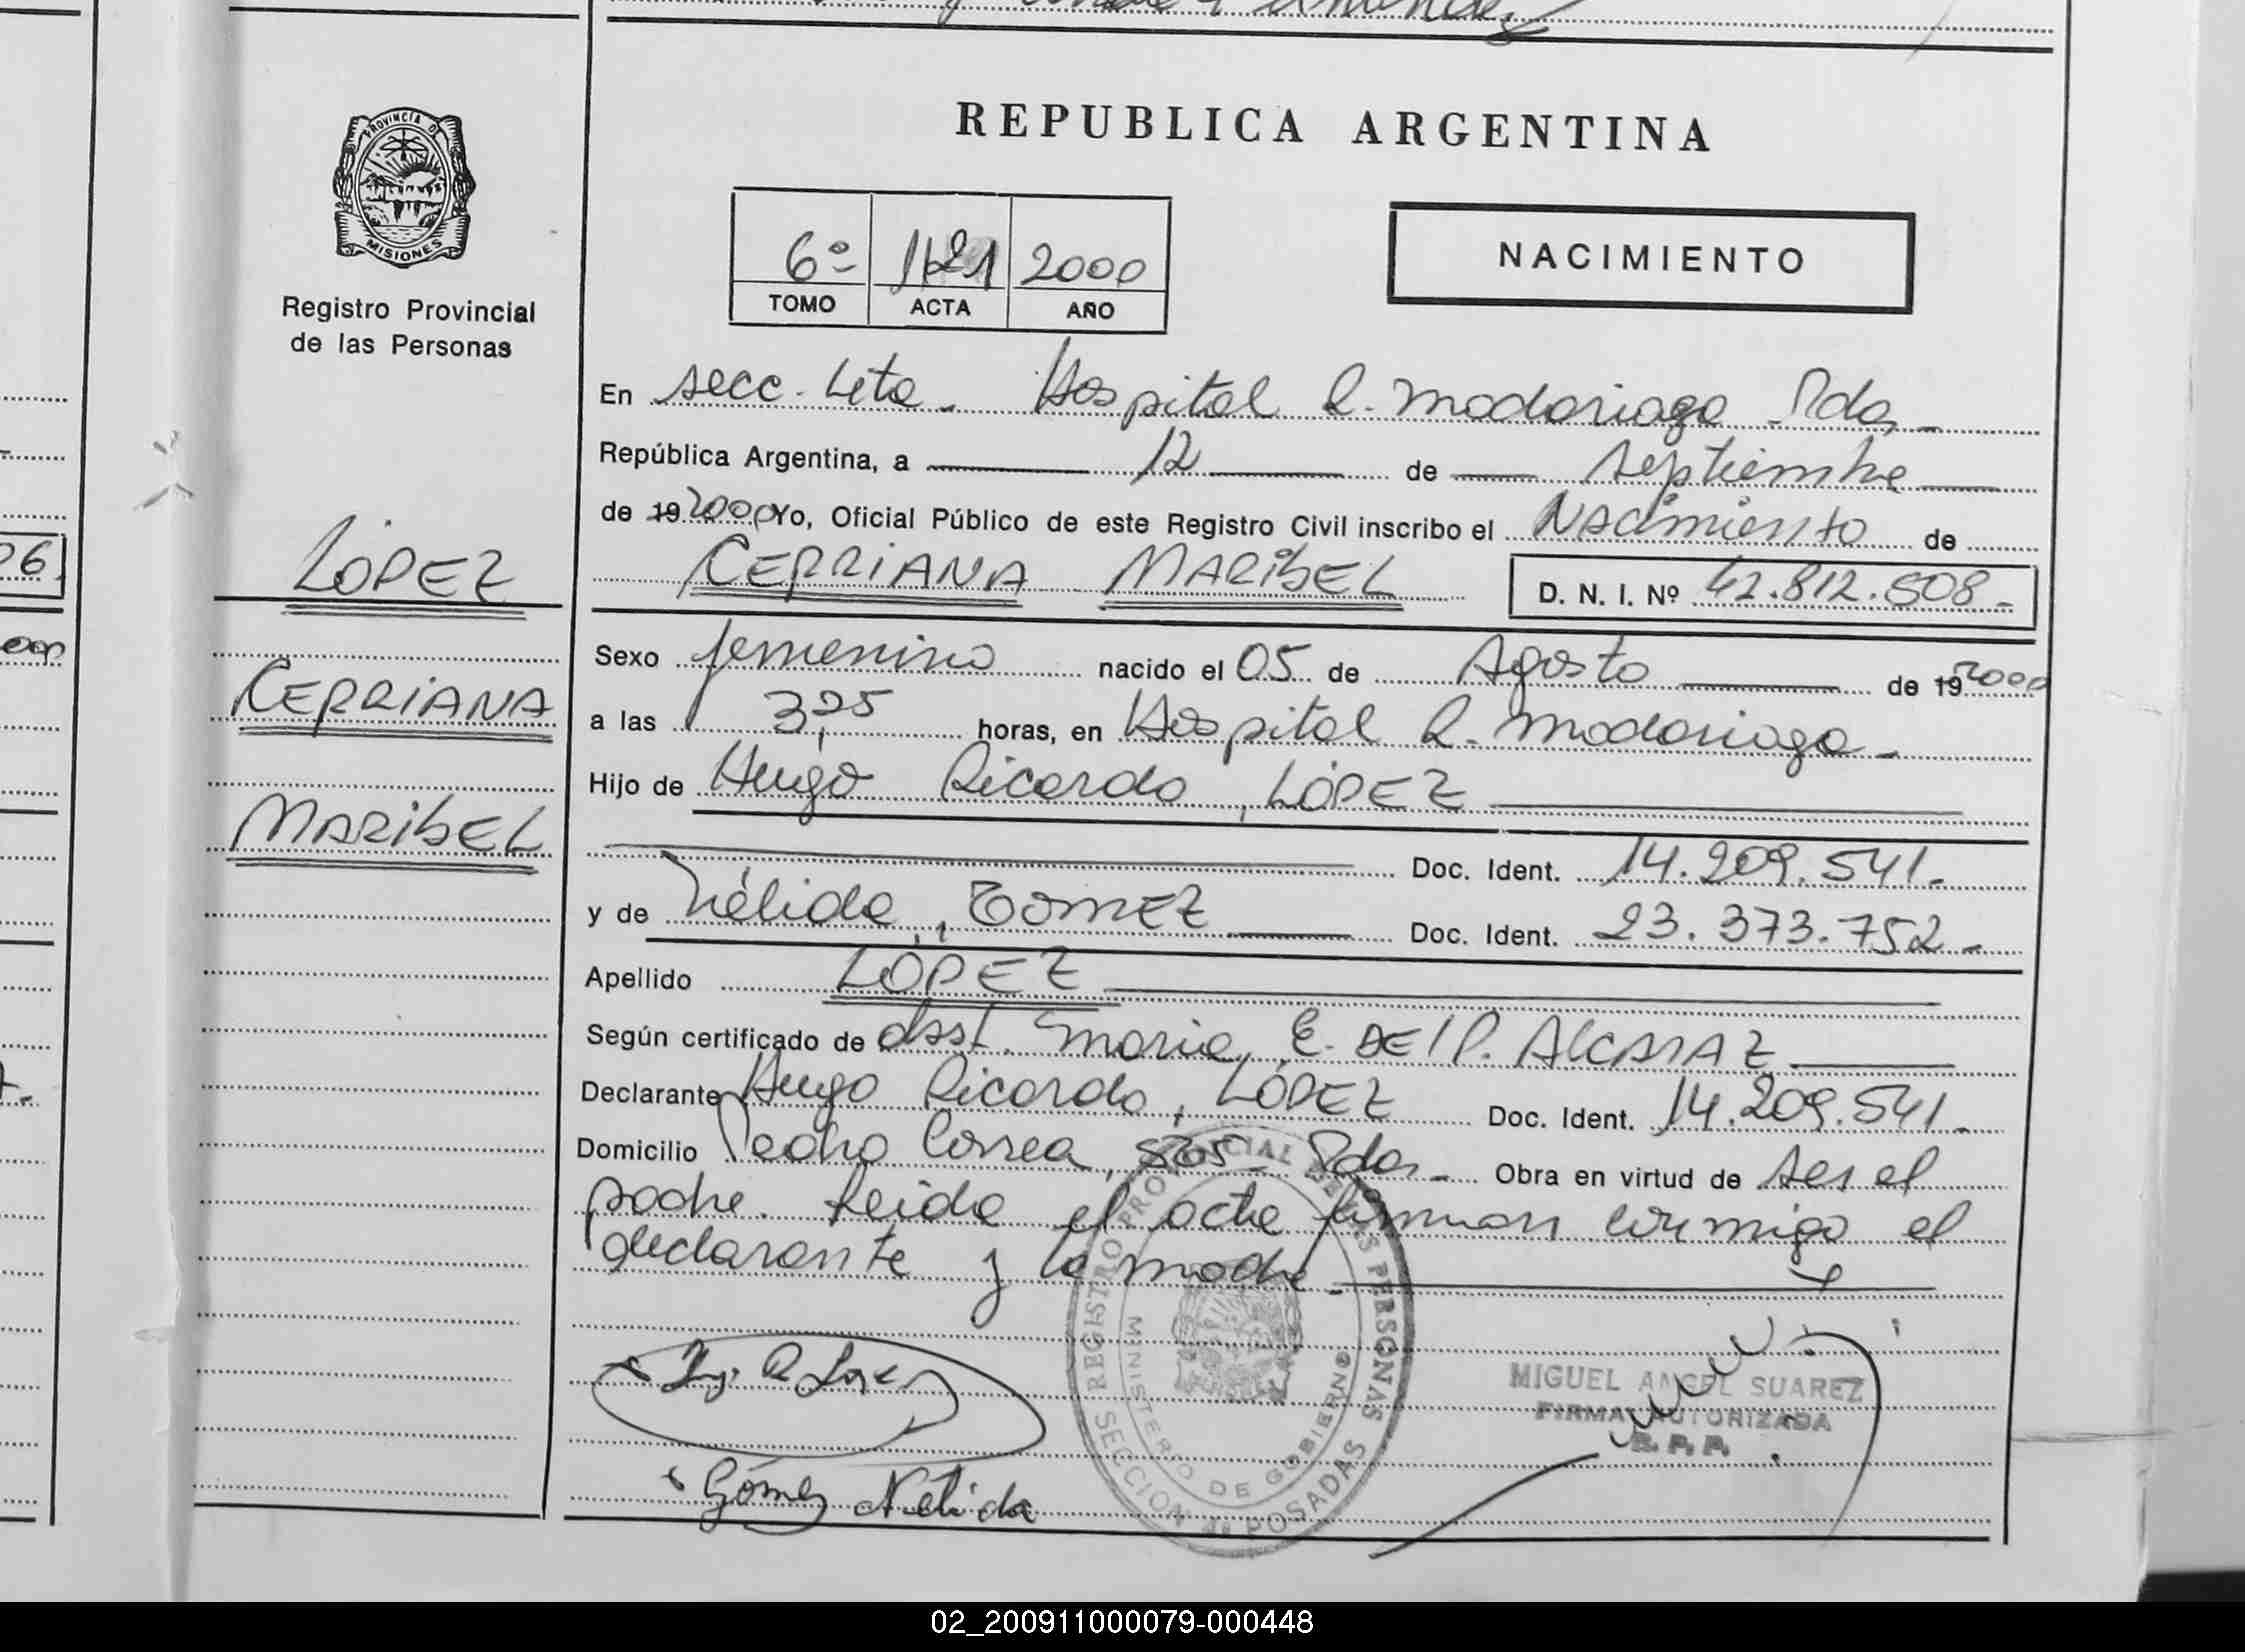 REPUBLICA ARGENTINA
PROVINCIA D
MISIONES
Registro Provincial
de las Personas
6º 1121 2000
TOMO ACTA AÑO
NACIMIENTO
En secc. 4ta. Hospital R. Madariaga Pdas.
República Argentina, a 12 de septiembre
de 19 2000 Yo, Oficial Público de este Registro Civil inscribo el Nacimiento de
CEPRIANA MARIBEL D. N. I. Nº 42.812.508.-
LÓPEZ
CEPRIANA
MARIBEL
Sexo femenino nacido el 05 de Agosto de 19 2000
a las 3,25 horas, en Hospital R. Madariaga.
Hijo de Hugo Ricardo, LÓPEZ
Doc. Ident. 14.209.541.-
y de Nélida, GOMEZ Doc. Ident. 23.373.752.-
Apellido LÓPEZ
Según certificado de obst. Maria, E. DE P. ALCARAZ
Declarante Hugo Ricardo, LÓPEZ Doc. Ident. 14.209.541.-
Domicilio Pedro Correa, 505 - Pdas.- Obra en virtud de ser el
padre. Leida el acta firman conmigo el
declarante y la madre.
REGISTRO PROVINCIAL DE LAS PERSONAS
MINISTERIO DE GOBIERNO
SECCION 4a POSADAS
Gómez Nélida
MIGUEL ANGEL SUAREZ
FIRMA AUTORIZADA
R. P. P.
02_200911000079-000448